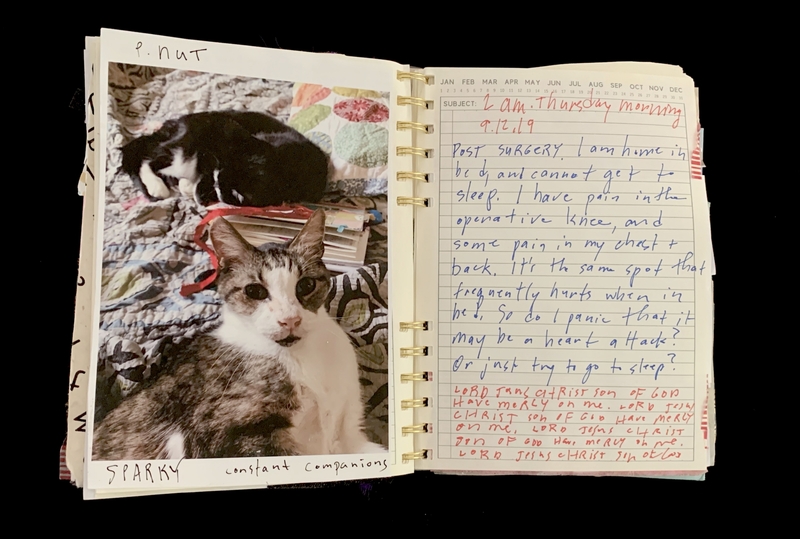 P. NUT
SPARKY constant companions
JAN FEB MAR APR MAY JUN JUL AUG SEP OCT NOV DEC
SUBJECT: 2 am. Thursday morning
9.12.19
POST SURGERY I am home in
bed, and cannot get to
sleep. I have pain in the
operative knee, and
some pain in my chest +
back. It's the same spot that
frequently hurts when in
bed. So do I panic that it
may be a heart attack?
Or just try to go to sleep?
LORD JESUS CHRIST SON OF GOD
HAVE MERCY on me. LORD JESUS
CHRIST son OF GOD HAVE MERCY
on me. LORD JESUS CHRIST
son OF GOD HAVE MERCY on me.
LORD JESUS CHRIST son of GOD